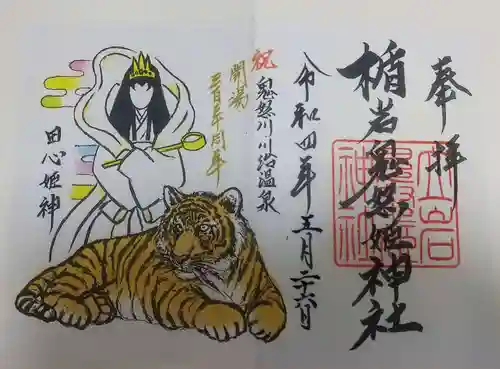 奉拝
楯岩鬼怒姫神社
令和四年三月二十六日
祝
鬼怒川・川治温泉
開湯
三百年周年
田心姫神